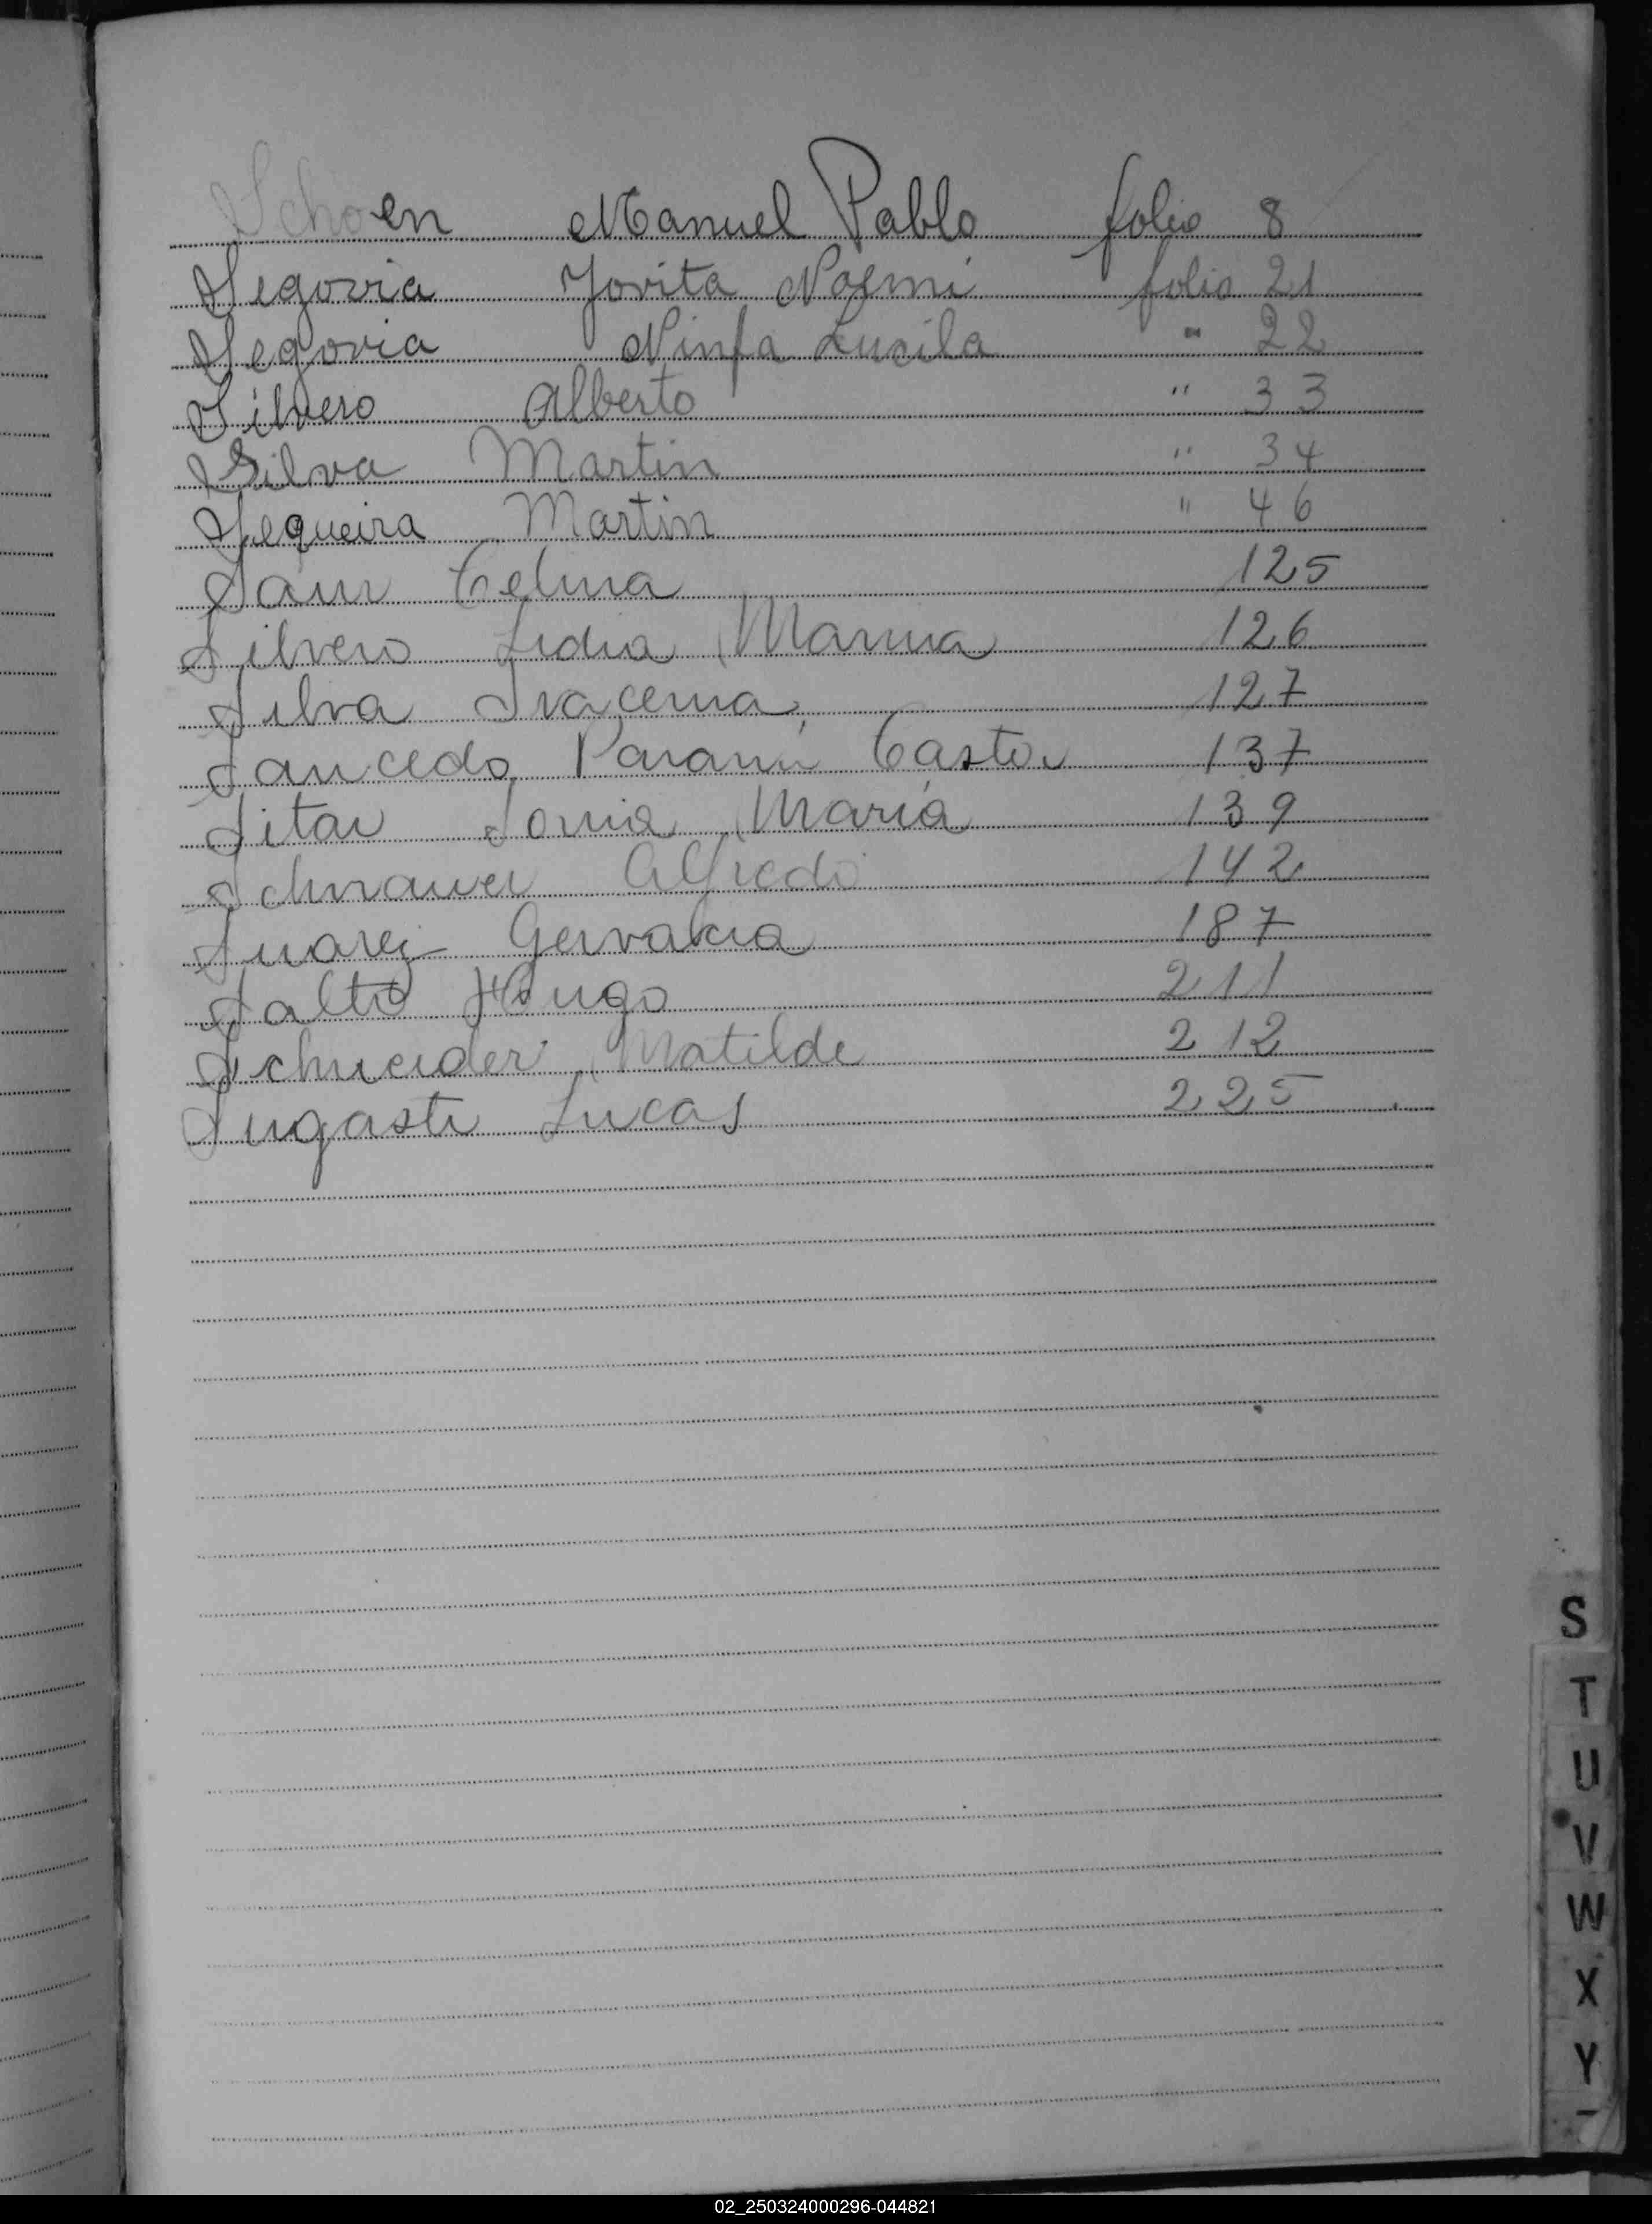 Schoen Manuel Pablo folio 8
Segovia Jovita Noemi folio 21
Segovia Ninfa Lucila " 22
Silvero Alberto " 33
Silva Martin " 34
Sequeira Martin " 46
Saur Celma 125
Silvero Lidia Marina 126
Silva Iracema 127
Saucedo Castor 137
Sitar Sonia María 139
Alfredo 142
Suarez Gervacia 187
Salto Hugo 211
Schneider Matilde 212
Sugasti Lucas 225
S
T
U
V
W
X
Y
02_250324000296-044821